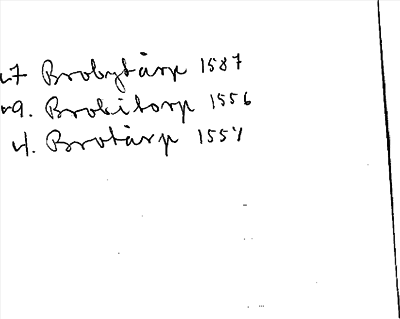 27 Brobytårp 1587
29. Brobitorp 1556
4. Brotårp 1557